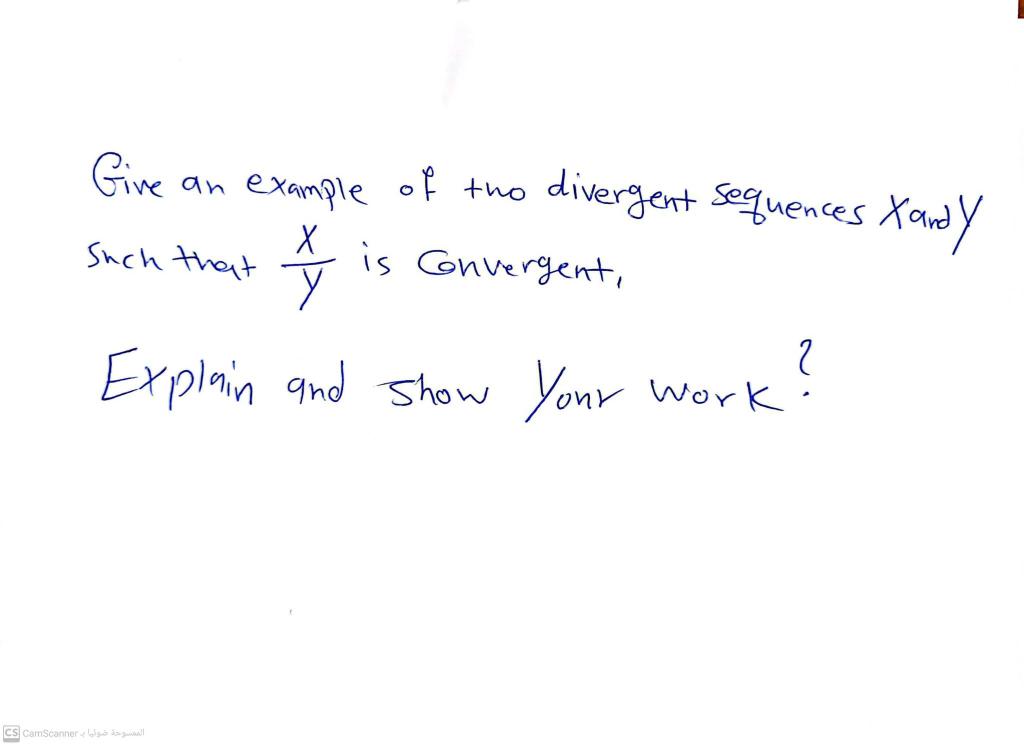 Give an example of two divergent sequences X and Y
such that X/Y is Convergent,
Explain and show Your work?
CS CamScanner الممسوحة ضوئيا بـ